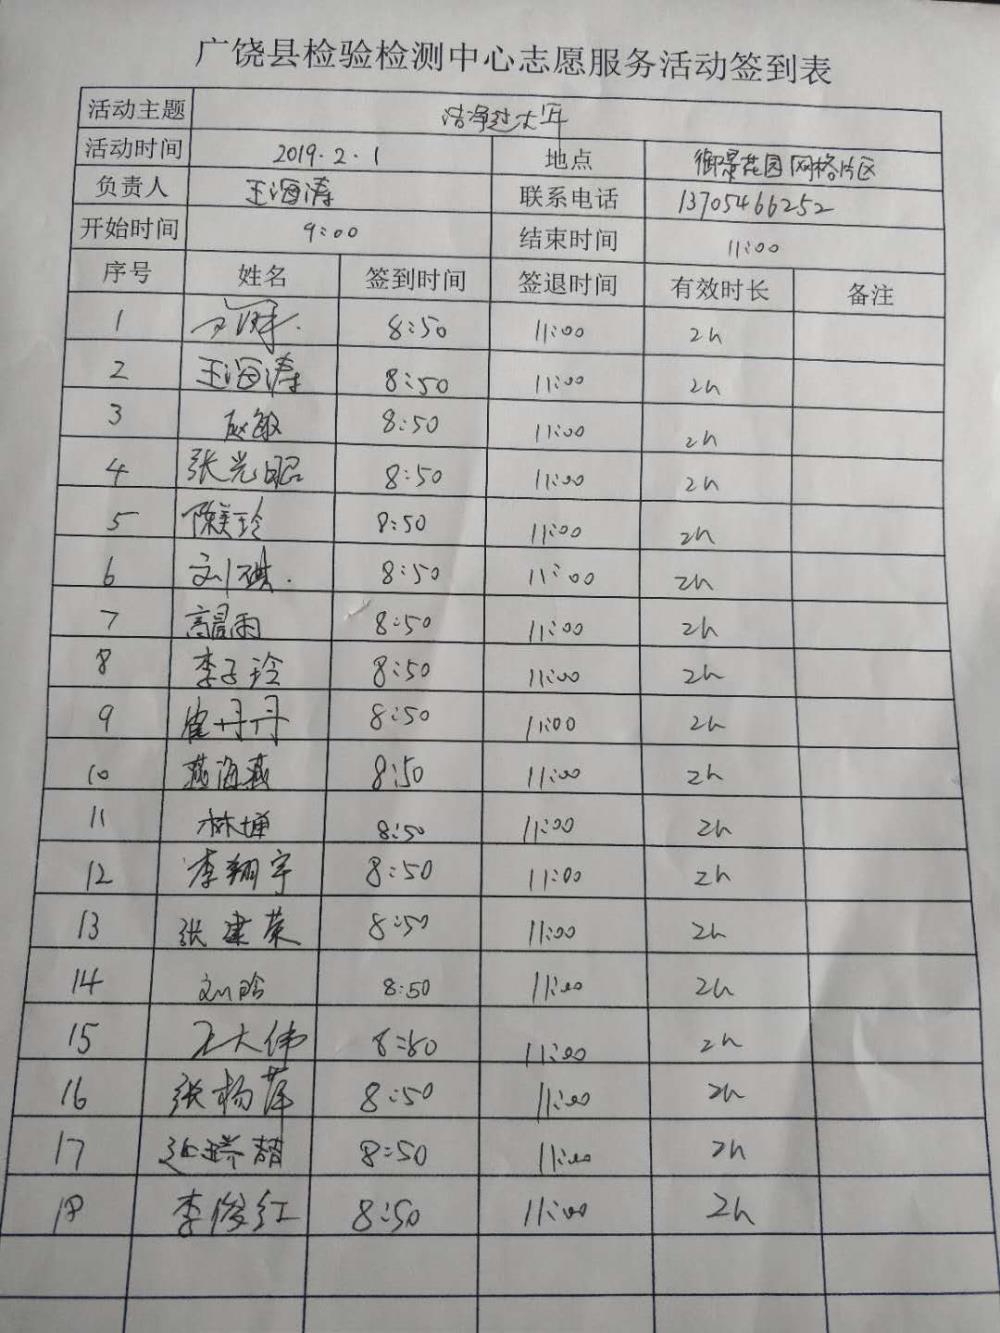 广饶县检验检测中心志愿服务活动签到表
活动主题 洁净过大年
活动时间 2019.2.1 地点 御景花园网格片区
负责人 王海涛 联系电话 13705466252
开始时间 9:00 结束时间 11:00
序号 姓名 签到时间 签退时间 有效时长 备注
1 8:50 11:00 2h
2 王海涛 8:50 11:00 2h
3 赵敏 8:50 11:00 2h
4 张光昭 8:50 11:00 2h
5 陈美玲 8:50 11:00 2h
6 刘琪 8:50 11:00 2h
7 高晨雨 8:50 11:00 2h
8 李子玲 8:50 11:00 2h
9 崔丹丹 8:50 11:00 2h
10 燕海燕 8:50 11:00 2h
11 8:50 11:00 2h
12 李翔宇 8:50 11:00 2h
13 张建荣 8:50 11:00 2h
14 刘晗 8:50 11:00 2h
15 王大伟 8:50 11:00 2h
16 张杨萍 8:50 11:00 2h
17 8:50 11:00 2h
18 李俊红 8:50 11:00 2h